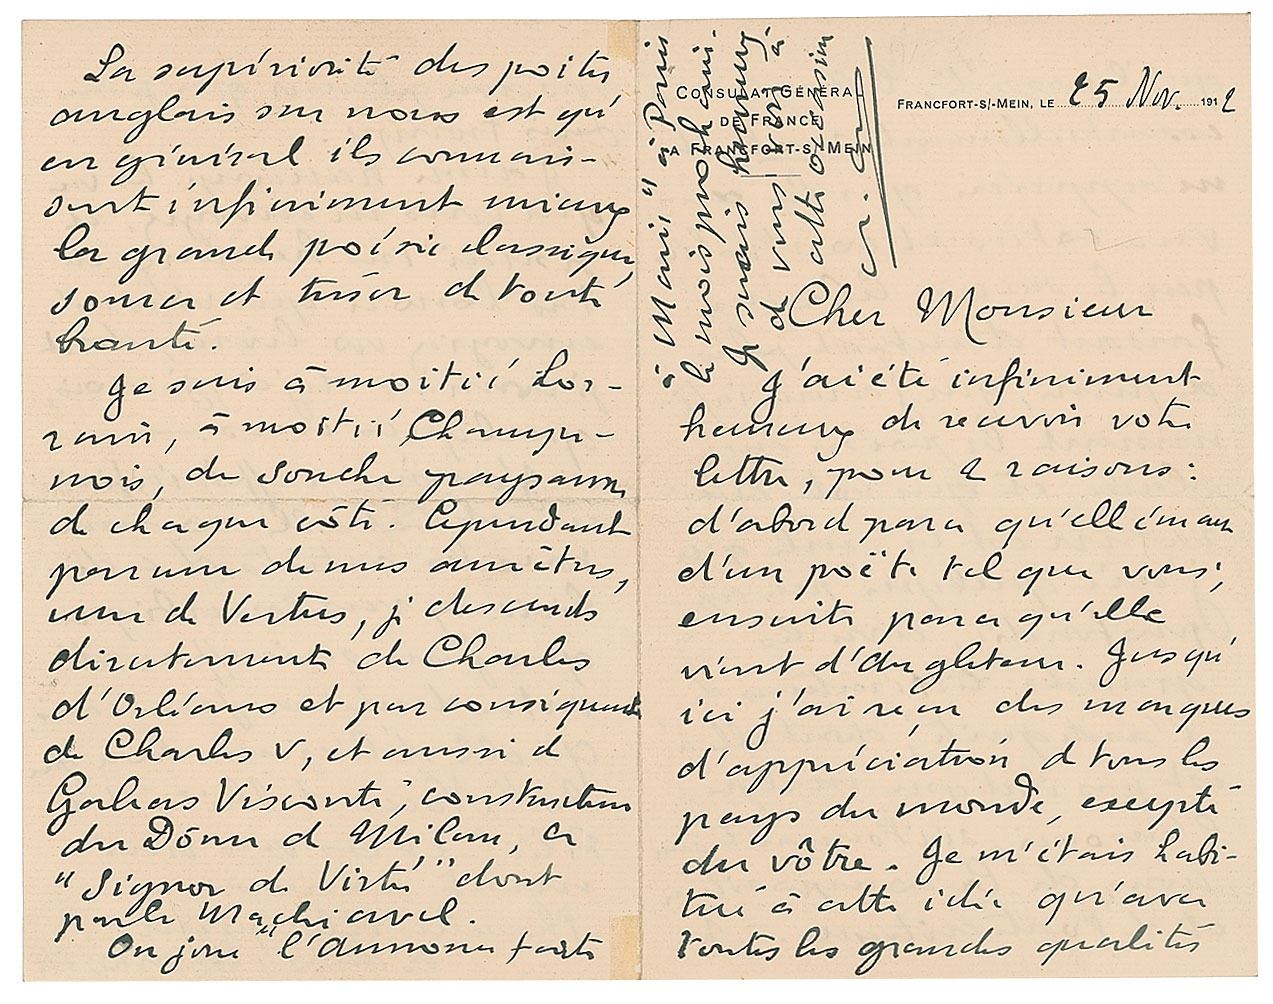 CONSULAT GÉNÉRAL
DE FRANCE
A FRANCFORT-S/-MEIN
FRANCFORT-S/-MEIN, LE 25 Nov. 1912
Cher Monsieur
J'ai été infiniment
heureux de recevoir votre
lettre, pour 2 raisons :
d'abord parce qu'elle émane
d'un poëte tel que vous,
ensuite parce qu'elle
vient d'Angleterre. Jusqu'
ici j'ai reçu des marques
d'appréciation de tous les
pays du monde, excepté
du vôtre. Je m'étais habi-
tué à cette idée qu'avec
toutes les grandes qualités
La supériorité des poètes
anglais sur nous est qu'
en général ils connais-
sent infiniment mieux
la grande poésie classique,
source et trésor de toute
beauté.
Je suis à moitié Lor-
rain, à moitié Champe-
nois, de souche paysanne
de chaque côté. Cependant
par une de mes ancêtres,
une de Vertus, je descends
directement de Charles
d'Orléans et par conséquent
de Charles V, et aussi de
Galeas Visconti, constructeur
du Dôme de Milan, ce
"Signor de Virtù" dont
parle Machiavel.
On joue "l'Annonce faite
à Marie" à Paris
le mois prochain.
Je serais heureux
de vous voir à
cette occasion